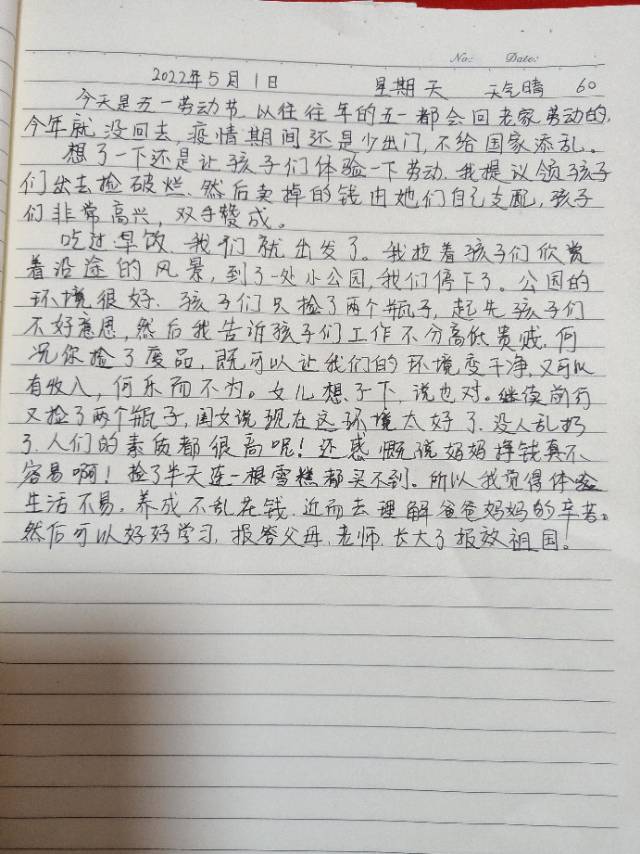 No: Date:
2022年5月1日 星期天 天气晴 60
今天是五一劳动节.以往往年的五一都会回老家劳动的,
今年就没回去,疫情期间还是少出门,不给国家添乱。
想了一下还是让孩子们体验一下劳动.我提议领孩子
们出去捡破烂.然后卖掉的钱由她们自己支配,孩子
们非常高兴,双手赞成。
吃过早饭我们就出发了。我拉着孩子们欣赏
着沿途的风景,到了一处小公园,我们停下了。公园的
环境很好.孩子们只捡了两个瓶子,起先孩子们
不好意思,然后我告诉孩子们工作不分高低贵贱.何
况你捡了废品,既可以让我们的环境变干净,又可以
有收入,何乐而不为。女儿想了下,说也对。继续前行
又捡了两个瓶子,闺女说现在这环境太好了.没人乱扔
了.人们的素质都很高呢!还感慨说妈妈挣钱真不
容易啊!捡了半天连一根雪糕都买不到。所以我觉得体验
生活不易.养成不乱花钱.近而去理解爸爸妈妈的辛苦。
然后可以好好学习.报答父母、老师.长大了报效祖国!